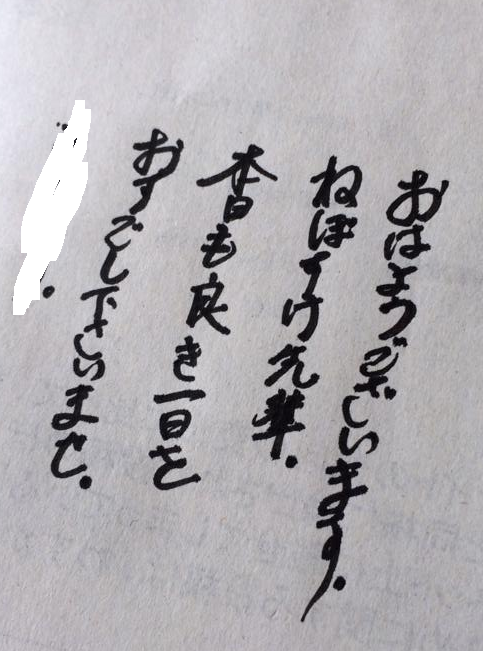 おはようございます。
ねぼすけ先輩。
本日も良き一日を
おすごし下さいませ。